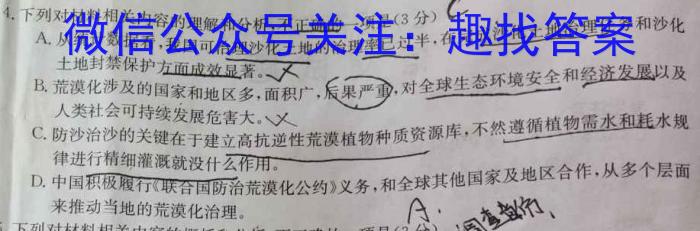 4.下列对材料相关内容的理解和分析, 正确的一项是(3分)
微信公众号关注：趣找答案
A. 从 数据 我国可治理沙化土地的治理率已过半, 在 沙化土地治理 和沙化
土地封禁保护方面成效显著。
B. 荒漠化涉及的国家和地区多,面积广,后果严重,对全球生态环境安全和经济发展以及
人类社会可持续发展危害大。
C. 防沙治沙的关键在于建立高抗逆性荒漠植物种质资源库,不然遵循植物需水和耗水规
律进行精细灌溉就没什么作用。
D. 中国积极履行《联合国防治荒漠化公约》义务,和全球其他国家及地区合作,从多个层面
来推动当地的荒漠化治理。
A.
下列对材料相关内容的概括和分析, 不正确的一项是(3分)